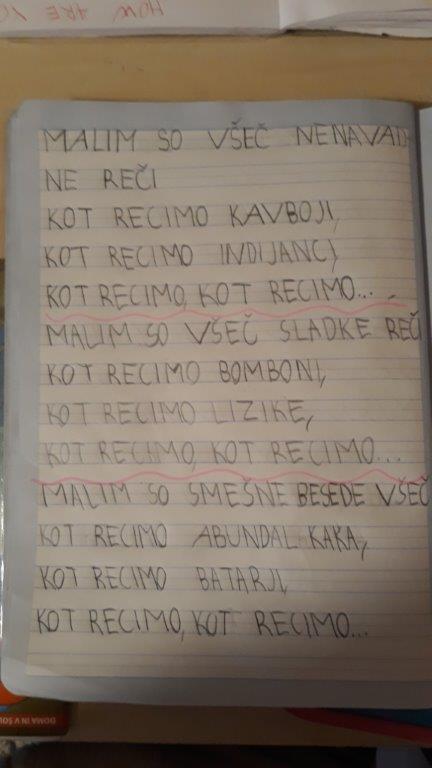 HOW ARE YO
MALIM SO VŠEČ NENAVAD
NE REČI
KOT RECIMO KAVBOJI,
KOT RECIMO INDIJANCI,
KOT RECIMO, KOT RECIMO...
MALIM SO VŠEČ SLADKE REČI
KOT RECIMO BOMBONI,
KOT RECIMO LIZIKE,
KOT RECIMO, KOT RECIMO...
MALIM SO SMEŠNE BESEDE VŠEČ
KOT RECIMO ABUNDAL KAKA,
KOT RECIMO BATARJI,
KOT RECIMO, KOT RECIMO...
DOMA IN V ŠOL